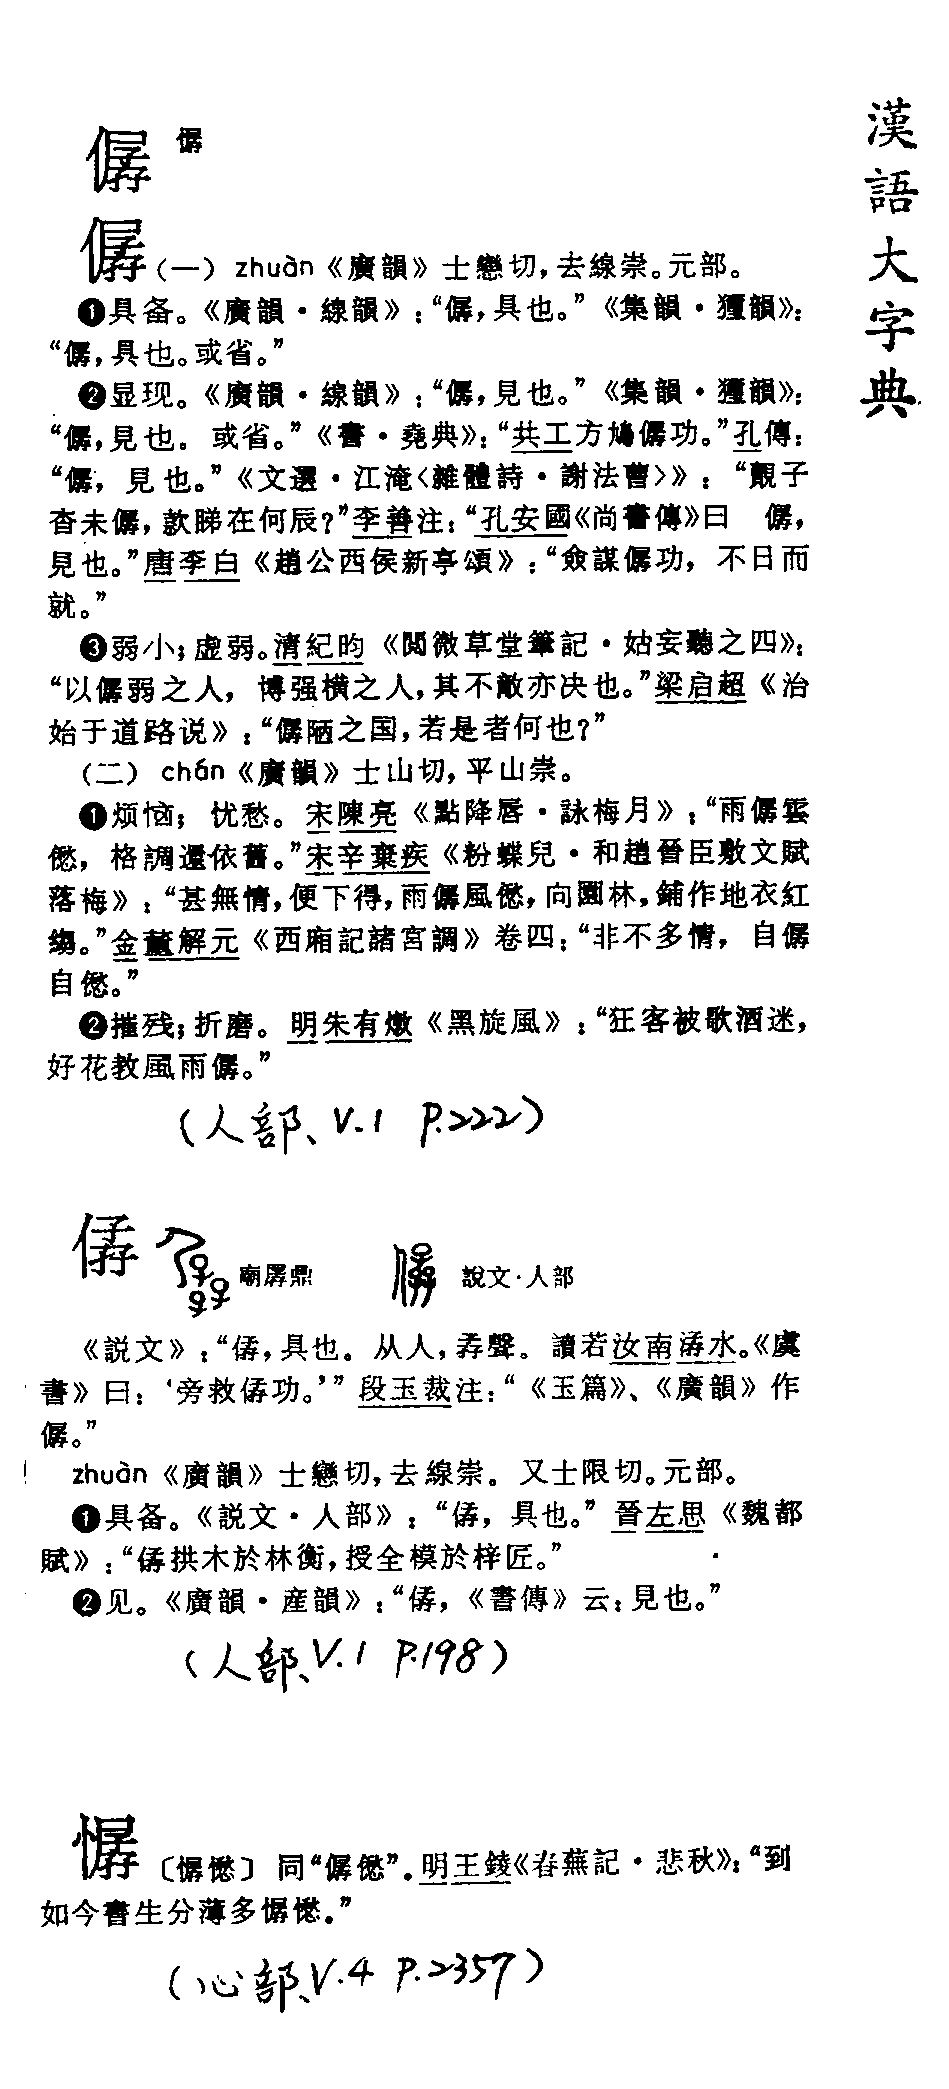 漢語大字典
僝 僝
僝(一) zhuàn《廣韻》士戀切，去線崇。元部。
❶具备。《廣韻·線韻》：“僝，具也。”《集韻·𤟌韻》：
“僝，具也。或省。”
❷显现。《廣韻·線韻》：“僝，見也。”《集韻·𤟌韻》：
“僝，見也。或省。”《書·堯典》：“共工方鳩僝功。”孔傳：
“僝，見也。”《文選·江淹〈雜體詩·謝法曹〉》：“覿子
杳未僝，款睇在何辰？”李善注：“孔安國《尚書傳》曰 僝，
見也。”唐李白《趙公西侯新亭頌》：“僉謀僝功，不日而
就。”
❸弱小；虚弱。清紀昀《閲微草堂筆記·姑妄聽之四》：
“以僝弱之人，博强横之人，其不敵亦决也。”梁启超《治
始于道路说》：“僝陋之国，若是者何也？”
(二) chán《廣韻》士山切，平山崇。
❶烦恼；忧愁。宋陳亮《點降唇·詠梅月》：“雨僝雲
僽，格調還依舊。”宋辛棄疾《粉蝶兒·和趙晉臣敷文賦
落梅》：“甚無情，便下得，雨僝風僽，向園林，鋪作地衣紅
縐。”金董解元《西廂記諸宮調》卷四：“非不多情，自僝
自僽。”
❷摧残；折磨。明朱有燉《黑旋風》：“狂客被歌酒迷，
好花教風雨僝。”
(人部、V.1 P.222)
孱鼎 說文·人部
《説文》：“孱，具也。从人，孨聲。讀若汝南水。《虞
書》曰：‘旁救功。’”段玉裁注：“《玉篇》、《廣韻》作
僝。”
zhuàn《廣韻》士戀切，去線崇。又士限切。元部。
❶具备。《説文·人部》：“，具也。”晉左思《魏都
賦》：“拱木於林衡，授全模於梓匠。”
❷见。《廣韻·産韻》：“，《書傳》云：見也。”
(人部、V.1 P.198)
〔僽〕 同“僝僽”．明王錂《春蕪記·悲秋》：“到
如今書生分薄多僽。”
(心部、V.4 P.2357)